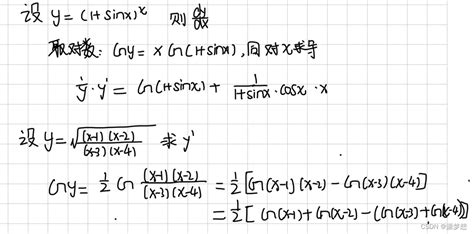 设 y = (1+sinx)^x 则 dy/dx
取对数: lny = x ln(1+sinx), 同对x求导
1/y · y' = ln(1+sinx) + 1/(1+sinx) · cosx · x
设 y = √((x-1)(x-2)/(x-3)(x-4)) 求 y'
lny = 1/2 ln (x-1)(x-2)/(x-3)(x-4) = 1/2 [ln(x-1)(x-2) - ln(x-3)(x-4)]
= 1/2 [ln(x-1) + ln(x-2) - (ln(x-3) + ln(x-4))]